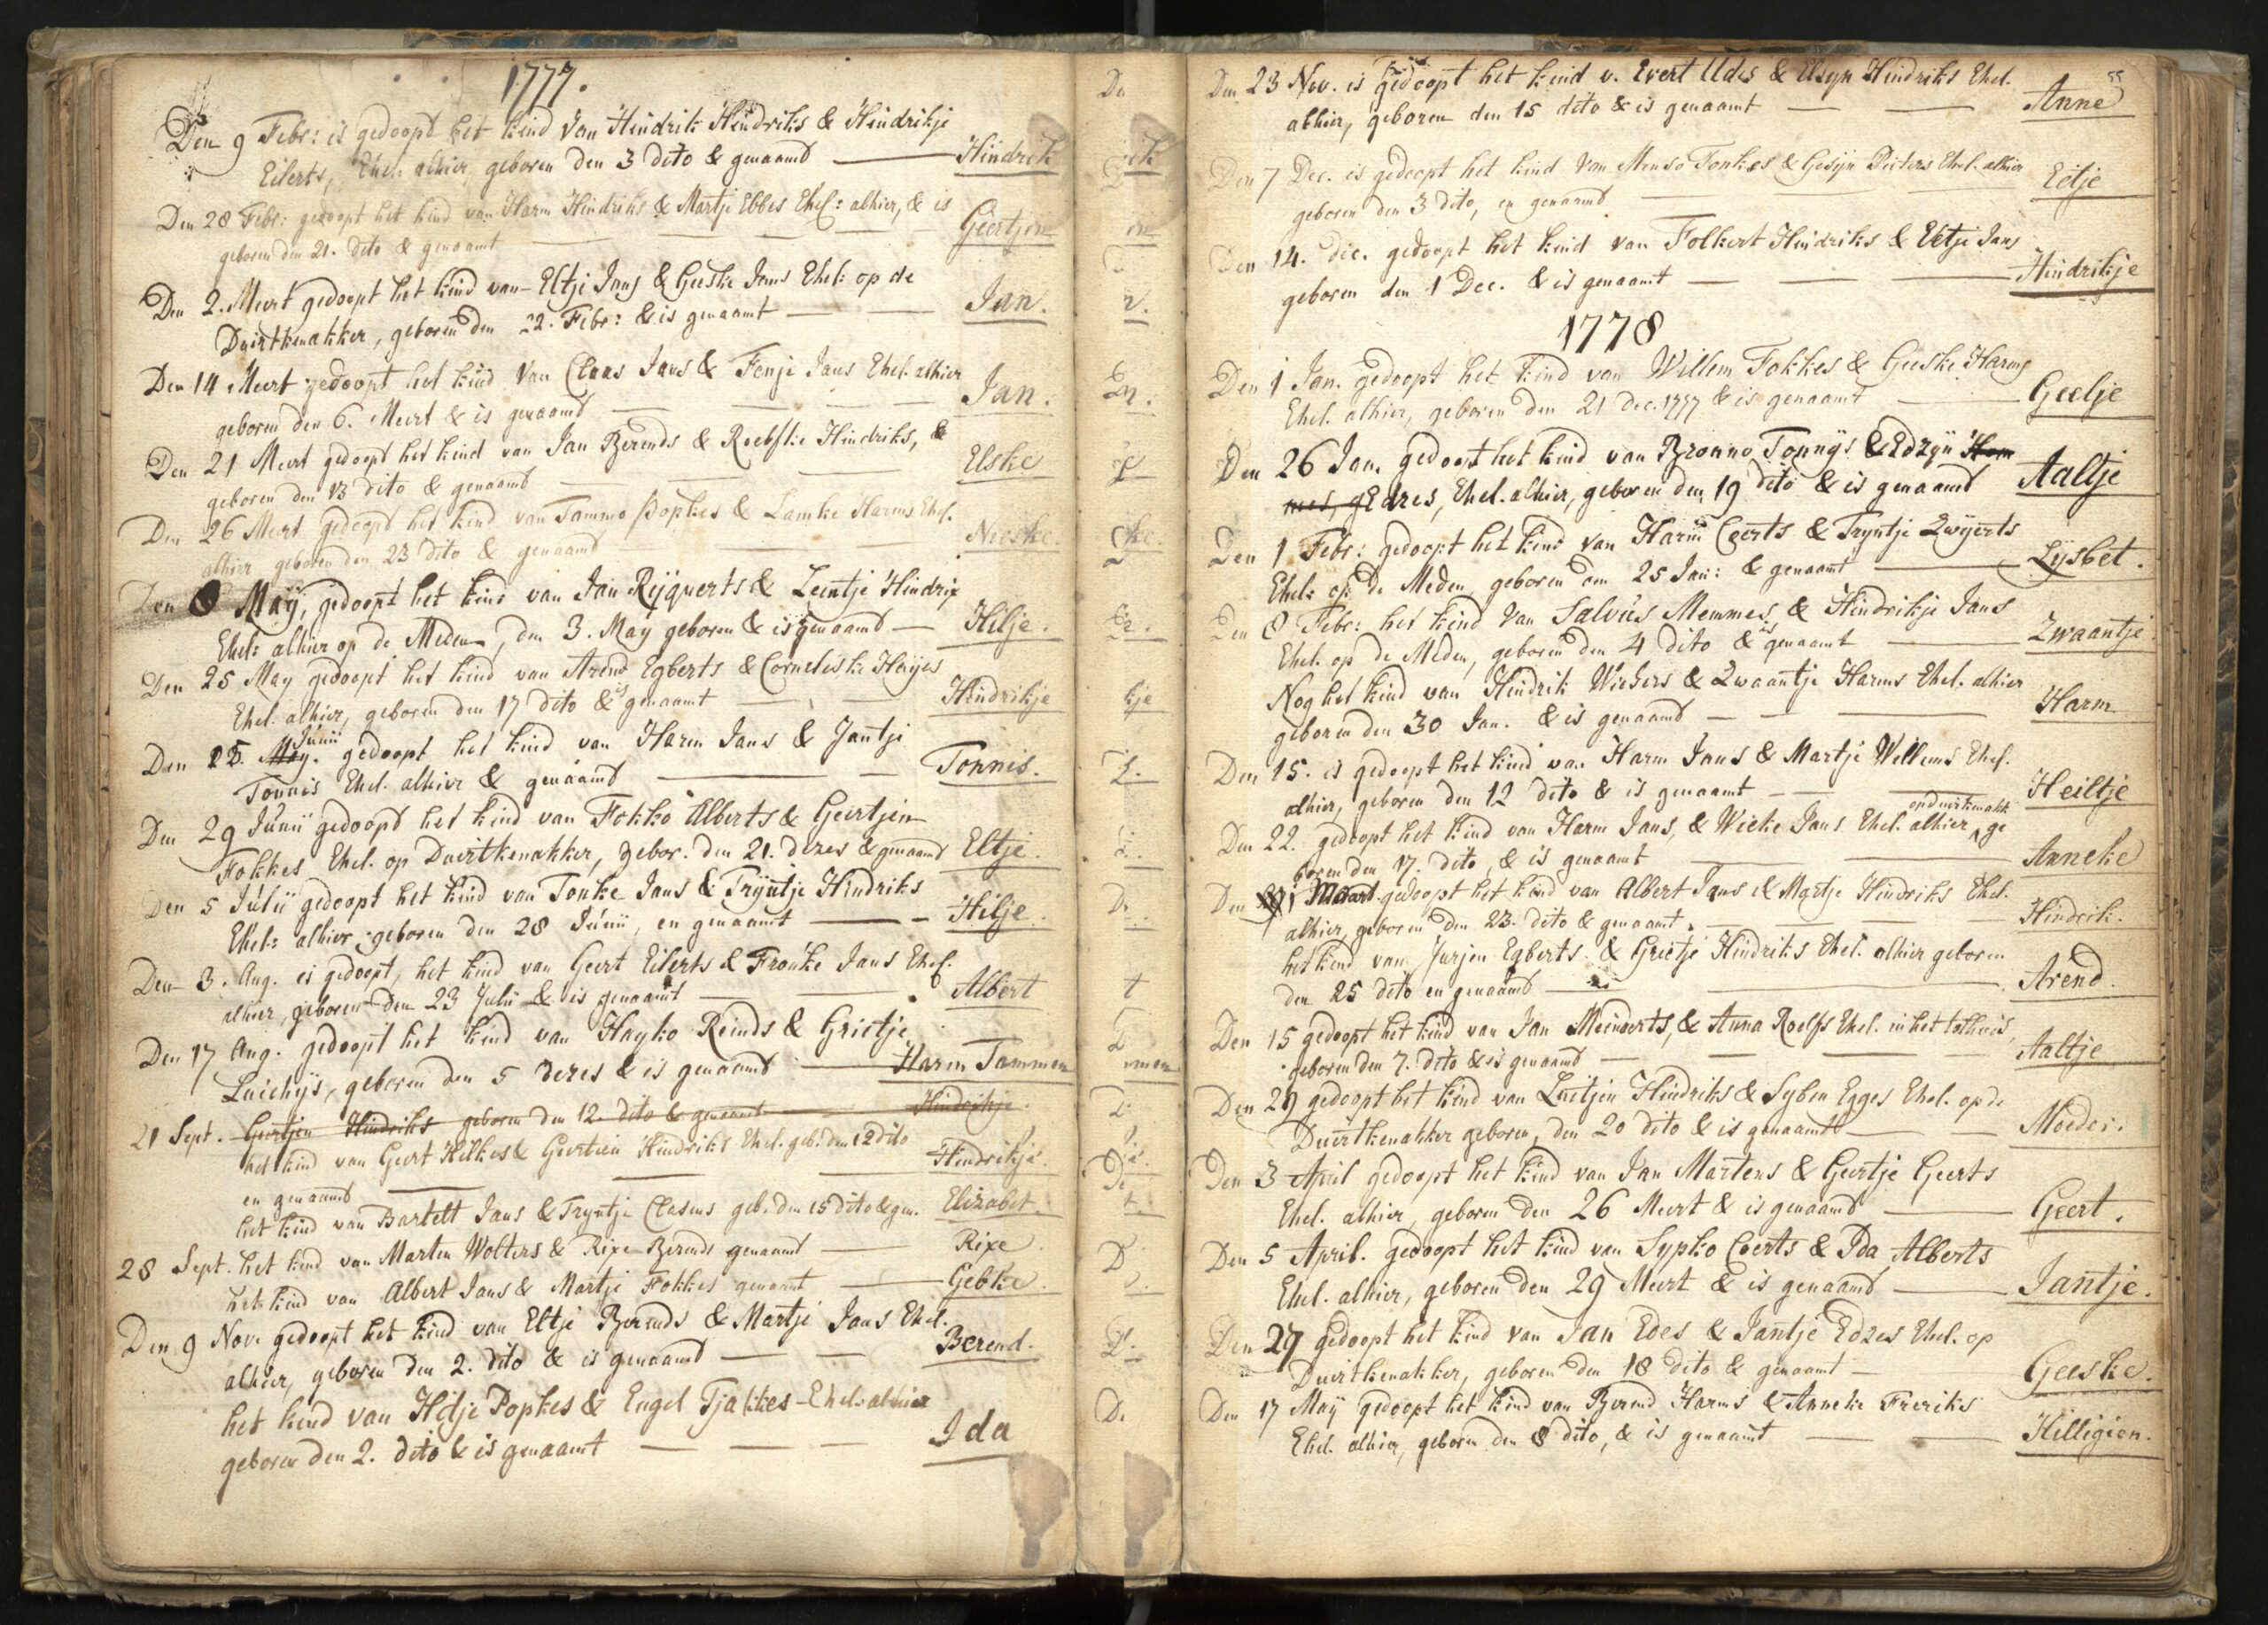 1777.
Den 9 Febr: is gedoopt het kind van Hindrik Hindriks & Hindrikje
Eilerts, Ehel: alhier, geboren den 3 dito & genaamd Hindrik
Den 28 Febr: gedoopt het kind van Harm Hindriks & Martje Ebbes Ehel: alhier, & is
geboren den 21. dito & genaamt Geertjen
Den 2. Meert gedoopt het kind van Eltje Jans & Geeske Jans Ehel: op de
Duirtkenakker, geboren den 22. Febr: & is genaamt Jan.
Den 14 Meert gedoopt het kind van Claas Jans & Fenje Jans Ehel. alhier
geboren den 6. Meert & is genaamd Jan.
Den 21 Meert gedoopt het kind van Jan Berends & Roelfke Hindriks, &
geboren den 13 dito & genaamd Elske
Den 26 Meert gedoopt het kind van Tammo Popkes & Lamke Harms Ehel.
alhier geboren den 23 dito & genaamd Neeske.
Den 8 Maÿ, gedoopt het kind van Jan Rijqwerts & Leentje Hindrix
Ehel: alhier op de Meden, den 3. Maÿ geboren & is genaamd Hilje.
Den 25 May gedoopt het kind van Arend Egberts & Corneliske Hayes
Ehel. alhier, geboren den 17 dito & is genaamt Hindrikje
Den 15. May. Junii gedoopt het kind van Harm Jans & Jantje
Tonnis Ehel. alhier & genaamd Tonnis.
Den 29 Junii gedoopt het kind van Fokko Alberts & Geertjen
Fokkes Ehel. op Duirtkenakker, gebor. den 21. dezes & genaamd Eltje.
Den 5 Julii gedoopt het kind van Tonke Jans & Trijntje Hindriks
Ehel: alhier geboren den 28 Junii, en genaamt Hilje.
Den 3. Aug. is gedoopt, het kind van Geert Eilerts & Frouke Jans Ehel.
alhier, geboren den 23 Julii & is genaamt Albert
Den 17 Aug. gedoopt het kind van Hayko Reinds & Grietje
Luichijs, geboren den 5 dezes & is genaamd Harm Tammen
21 Sept. Geertjen Hindriks geboren den 12 dito & genaamt Hindrikje.
het kind van Geert Hilkes & Geertien Hindriks Ehel. geb. den 12 dito
en genaamd Hindrikje.
het kind van Bartelt Jans & Tryntje Clasens geb. den 15 dito & gen. Elizabet.
28 Sept. het kind van Marten Wolters & Rixe Berends genaamd Rixe
het kind van Albert Jans & Martje Fokkes genaamt Gebke.
Den 9 Nov. gedoopt het kind van Eltje Berends & Martje Jans Ehel.
alhier, geboren den 2. dito & is genaamd Berend.
het kind van Hilje Popkes & Engel Tjakkes Ehel. alhier
geboren den 2. dito & is genaamt Ida
55
Den 23 Nov. is gedoopt het kind v. Evert Udes & Elsyn Hindriks Ehel.
alhier, geboren den 15 dito & is genaamt Anne
Den 7 Dec. is gedoopt het kind van Menso Tonkes & Gesyn Pieters Ehel. alhier
geboren den 3 dito, en genaamd Eetje
Den 14. dec. gedoopt het kind van Folkert Hindriks & Eltje Jans
geboren den 1 Dec. & is genaamt Hindrikje
1778
Den 1 Jan. gedoopt het kind van Willem Fokkes & Geeske Harms
Ehel. alhier, geboren den 21 dec. 1777 & is genaamt Geelje
Den 26 Jan. gedoopt het kind van Bronno Tonnijs & Edzyn Hom
mes, Edzes, Ehel. alhier, geboren den 19 dito & is genaamd Aaltje
Den 1 Febr: gedoopt het kind van Harm Geerts & Tryntje Zwyerts
Ehel: op de Meden, geboren den 25 Jan: & genaamt Lysbet.
Den 8 Febr: het kind van Salvius Memmes, & Hindrikje Jans
Ehel. op de Meden, geboren den 4 dito & is genaamt Zwaantje.
Nog het kind van Hindrik Wichers & Zwaantje Harms Ehel. alhier
geboren den 30 Jan. & is genaamd Harm
Den 15. is gedoopt het kind van Harm Jans & Martje Willems Ehel.
alhier, geboren den 12 dito & is genaamt Heiltje
Den 22. gedoopt het kind van Harm Jans, & Wieke Jans Ehel. alhier ge
boren den 17. dito, & is genaamt Anneke
Den 1 Maart gedoopt het kind van Albert Jans & Martje Hindriks Ehel.
alhier, geboren den 23. dito & genaamt Hindrik.
het kind van Jurjen Egberts & Grietje Hindriks Ehel. alhier geboren
den 25 dito en genaamd Arend.
Den 15 gedoopt het kind van Jan Meinderts, & Anna Roelfs Ehel. in het tolhuis,
geboren den 7. dito & is genaamd Aaltje
Den 29 gedoopt het kind van Luitjen Hindriks & Syben Egges Ehel. op de
Duirtkenakker geboren, den 20 dito & is genaamt Moeder.
Den 3 April gedoopt het kind van Jan Martens & Geertje Geerts
Ehel. alhier, geboren den 26 Meert & is genaamd Geert.
Den 5 April. gedoopt het kind van Sypko Geerts & Ida Alberts
Ehel. alhier, geboren den 29 Meert & is genaamd Jantje.
Den 27 gedoopt het kind van Jan Edes & Jantje Edzes Ehel. op
Duirtkenakker, geboren den 18 dito & genaamt Geeske.
Den 17 Maÿ gedoopt het kind van Berend Harms & Anneke Freriks
Ehel. alhier, geboren den 8 dito, & is genaamt Hilligien.